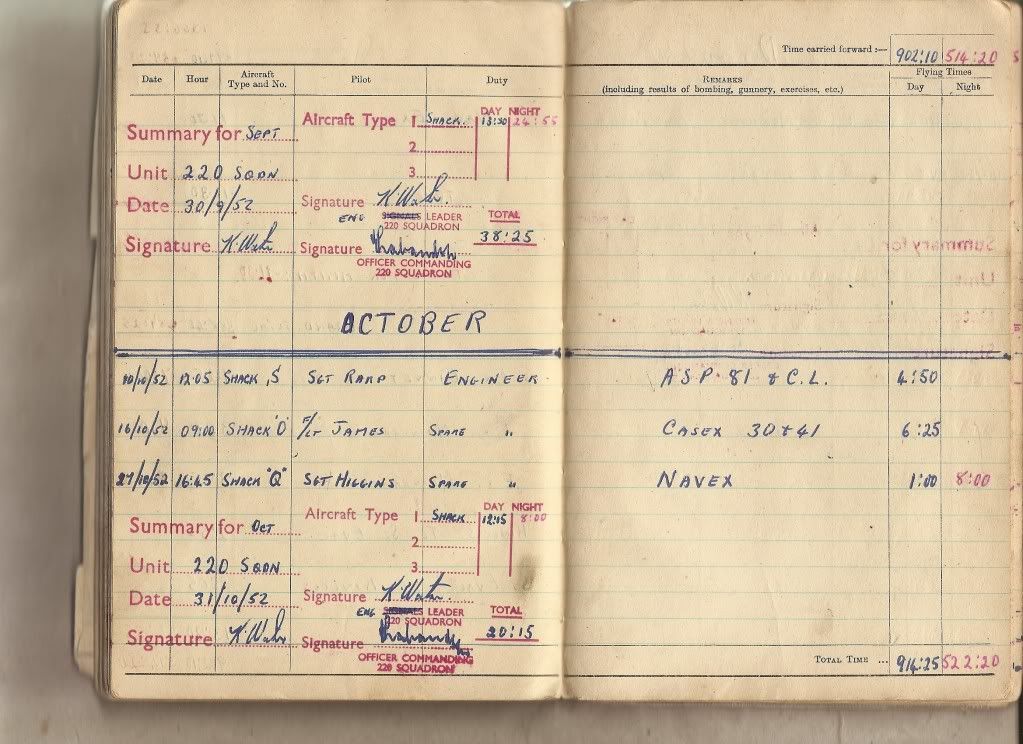 Time carried forward :— 902:10 514:20
Date Hour Aircraft Type and No. Pilot Duty REMARKS (including results of bombing, gunnery, exercises, etc.) Flying Times Day Night
Summary for SEPT
Aircraft Type 1 SHACK. DAY 13:30 NIGHT 24:55
2
3
Unit 220 SQDN
Date 30/9/52
Signature
Signature K. Water
ENG SIGNALS LEADER
220 SQUADRON
TOTAL
38:25
Signature
OFFICER COMMANDING
220 SQUADRON
OCTOBER
10/10/52 12.05 SHACK 'S' SGT RAMP ENGINEER ASP. 81 & C.L. 4:50
16/10/52 09:00 SHACK 'O' F/LT JAMES SPARE " CASEX 30 & 41 6:25
27/10/52 16:45 SHACK "Q" SGT HIGGINS SPARE " NAVEX 1:00 8:00
Summary for OCT
Aircraft Type 1 SHACK DAY 12:15 NIGHT 8:00
2
3
Unit 220 SQDN
Date 31/10/52
Signature
Signature
ENG SIGNALS LEADER
220 SQUADRON
TOTAL
20:15
Signature
OFFICER COMMANDING
220 SQUADRON
TOTAL TIME ... 914:25 522:20